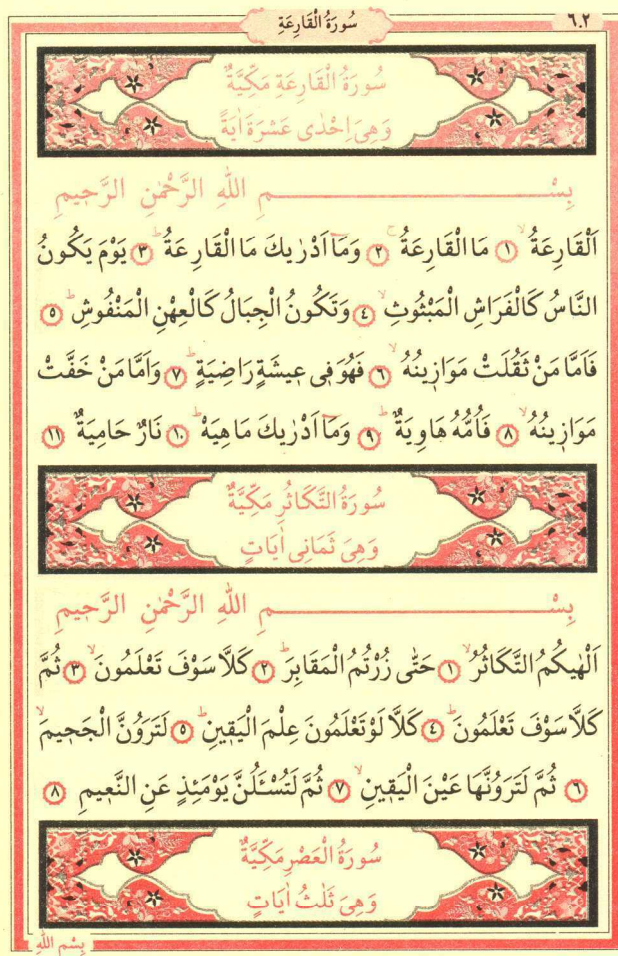 سُورَةُ الْقَارِعَةِ
٦٠٢
سُورَةُ الْقَارِعَةِ مَكِّيَّةٌ
وَهِيَ اِحْدٰى عَشْرَةَ اٰيَةً
بِسْمِ اللّٰهِ الرَّحْمٰنِ الرَّحٖيمِ
اَلْقَارِعَةُۙ ١ مَا الْقَارِعَةُۚ ٢ وَمَٓا اَدْرٰيكَ مَا الْقَارِعَةُۜ ٣ يَوْمَ يَكُونُ
النَّاسُ كَالْفَرَاشِ الْمَبْثُوثِۙ ٤ وَتَكُونُ الْجِبَالُ كَالْعِهْنِ الْمَنْفُوشِۜ ٥
فَاَمَّا مَنْ ثَقُلَتْ مَوَازٖينُهُۙ ٦ فَهُوَ فٖى عٖيشَةٍ رَاضِيَةٍۜ ٧ وَاَمَّا مَنْ خَفَّتْ
مَوَازٖينُهُۙ ٨ فَاُمُّهُ هَاوِيَةٌۜ ٩ وَمَٓا اَدْرٰيكَ مَاهِيَهْۜ ١٠ نَارٌ حَامِيَةٌ ١١
سُورَةُ التَّكَاثُرِ مَكِّيَّةٌ
وَهِيَ ثَمَانِى اٰيَاتٍ
بِسْمِ اللّٰهِ الرَّحْمٰنِ الرَّحٖيمِ
اَلْهٰيكُمُ التَّكَاثُرُۙ ١ حَتّٰى زُرْتُمُ الْمَقَابِرَۜ ٢ كَلَّا سَوْفَ تَعْلَمُونَۙ ٣ ثُمَّ
كَلَّا سَوْفَ تَعْلَمُونَۜ ٤ كَلَّا لَوْ تَعْلَمُونَ عِلْمَ الْيَقٖينِۜ ٥ لَتَرَوُنَّ الْجَحٖيمَۙ
٦ ثُمَّ لَتَرَوُنَّهَا عَيْنَ الْيَقٖينِۙ ٧ ثُمَّ لَتُسْـَٔلُنَّ يَوْمَئِذٍ عَنِ النَّعٖيمِ ٨
سُورَةُ الْعَصْرِ مَكِّيَّةٌ
وَهِيَ ثَلٰثُ اٰيَاتٍ
بِسْمِ اللّٰهِ